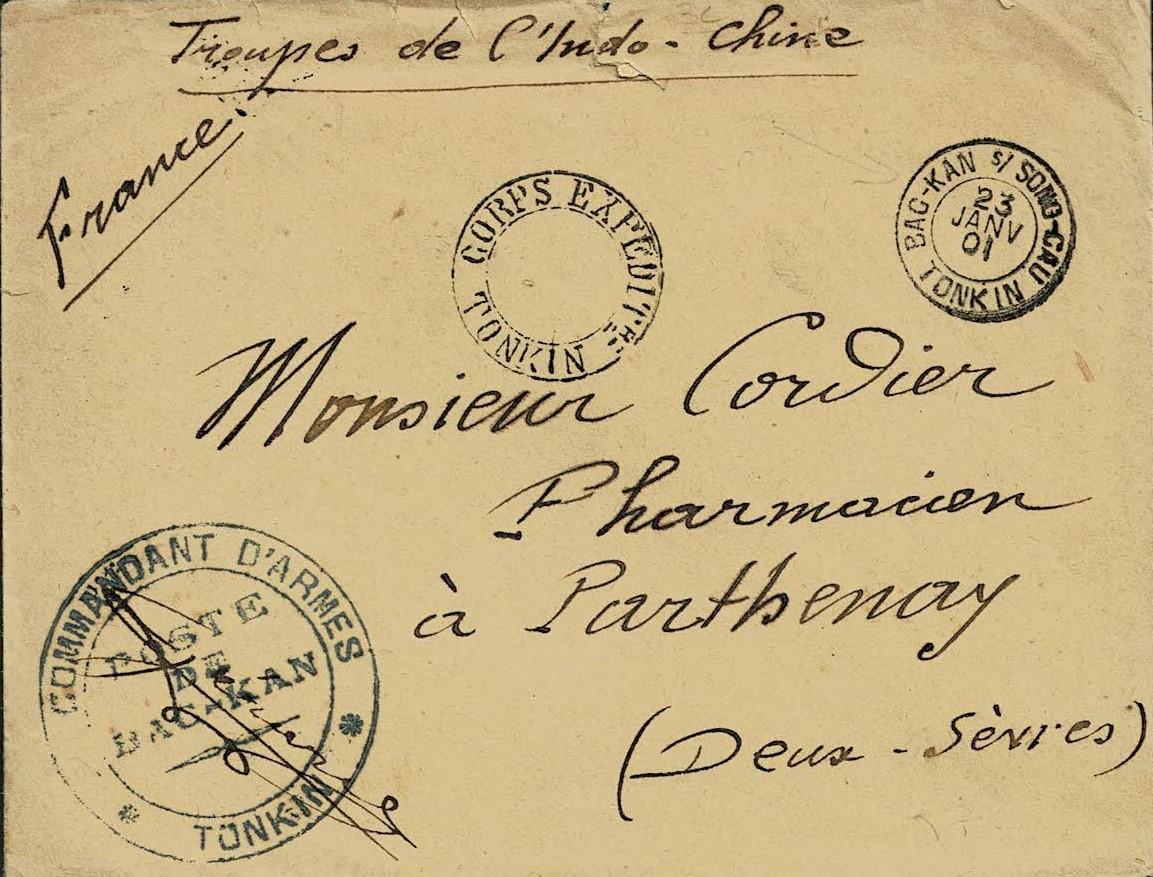 Troupes de l'Indo-Chine
France.
CORPS EXPEDITRE
TONKIN
BAC-KAN S/ SONG-CAU
23
JANV
01
TONKIN
Monsieur Cordier
Pharmacien
à Parthenay
(Deux-Sèvres)
COMMANDANT D'ARMES
POSTE
DE
BAC-KAN
TONKIN